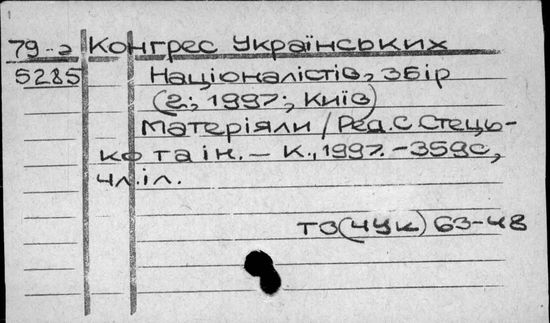 1
79-г Конгрес Українських
5285 Націоналістів, Збір
(2; 1997; Київ)
Матеріяли / Ред. С Стець-
ко та ін. – К., 1997. – 359с,
4л. іл.
ТЗ(4Ук) 63-48